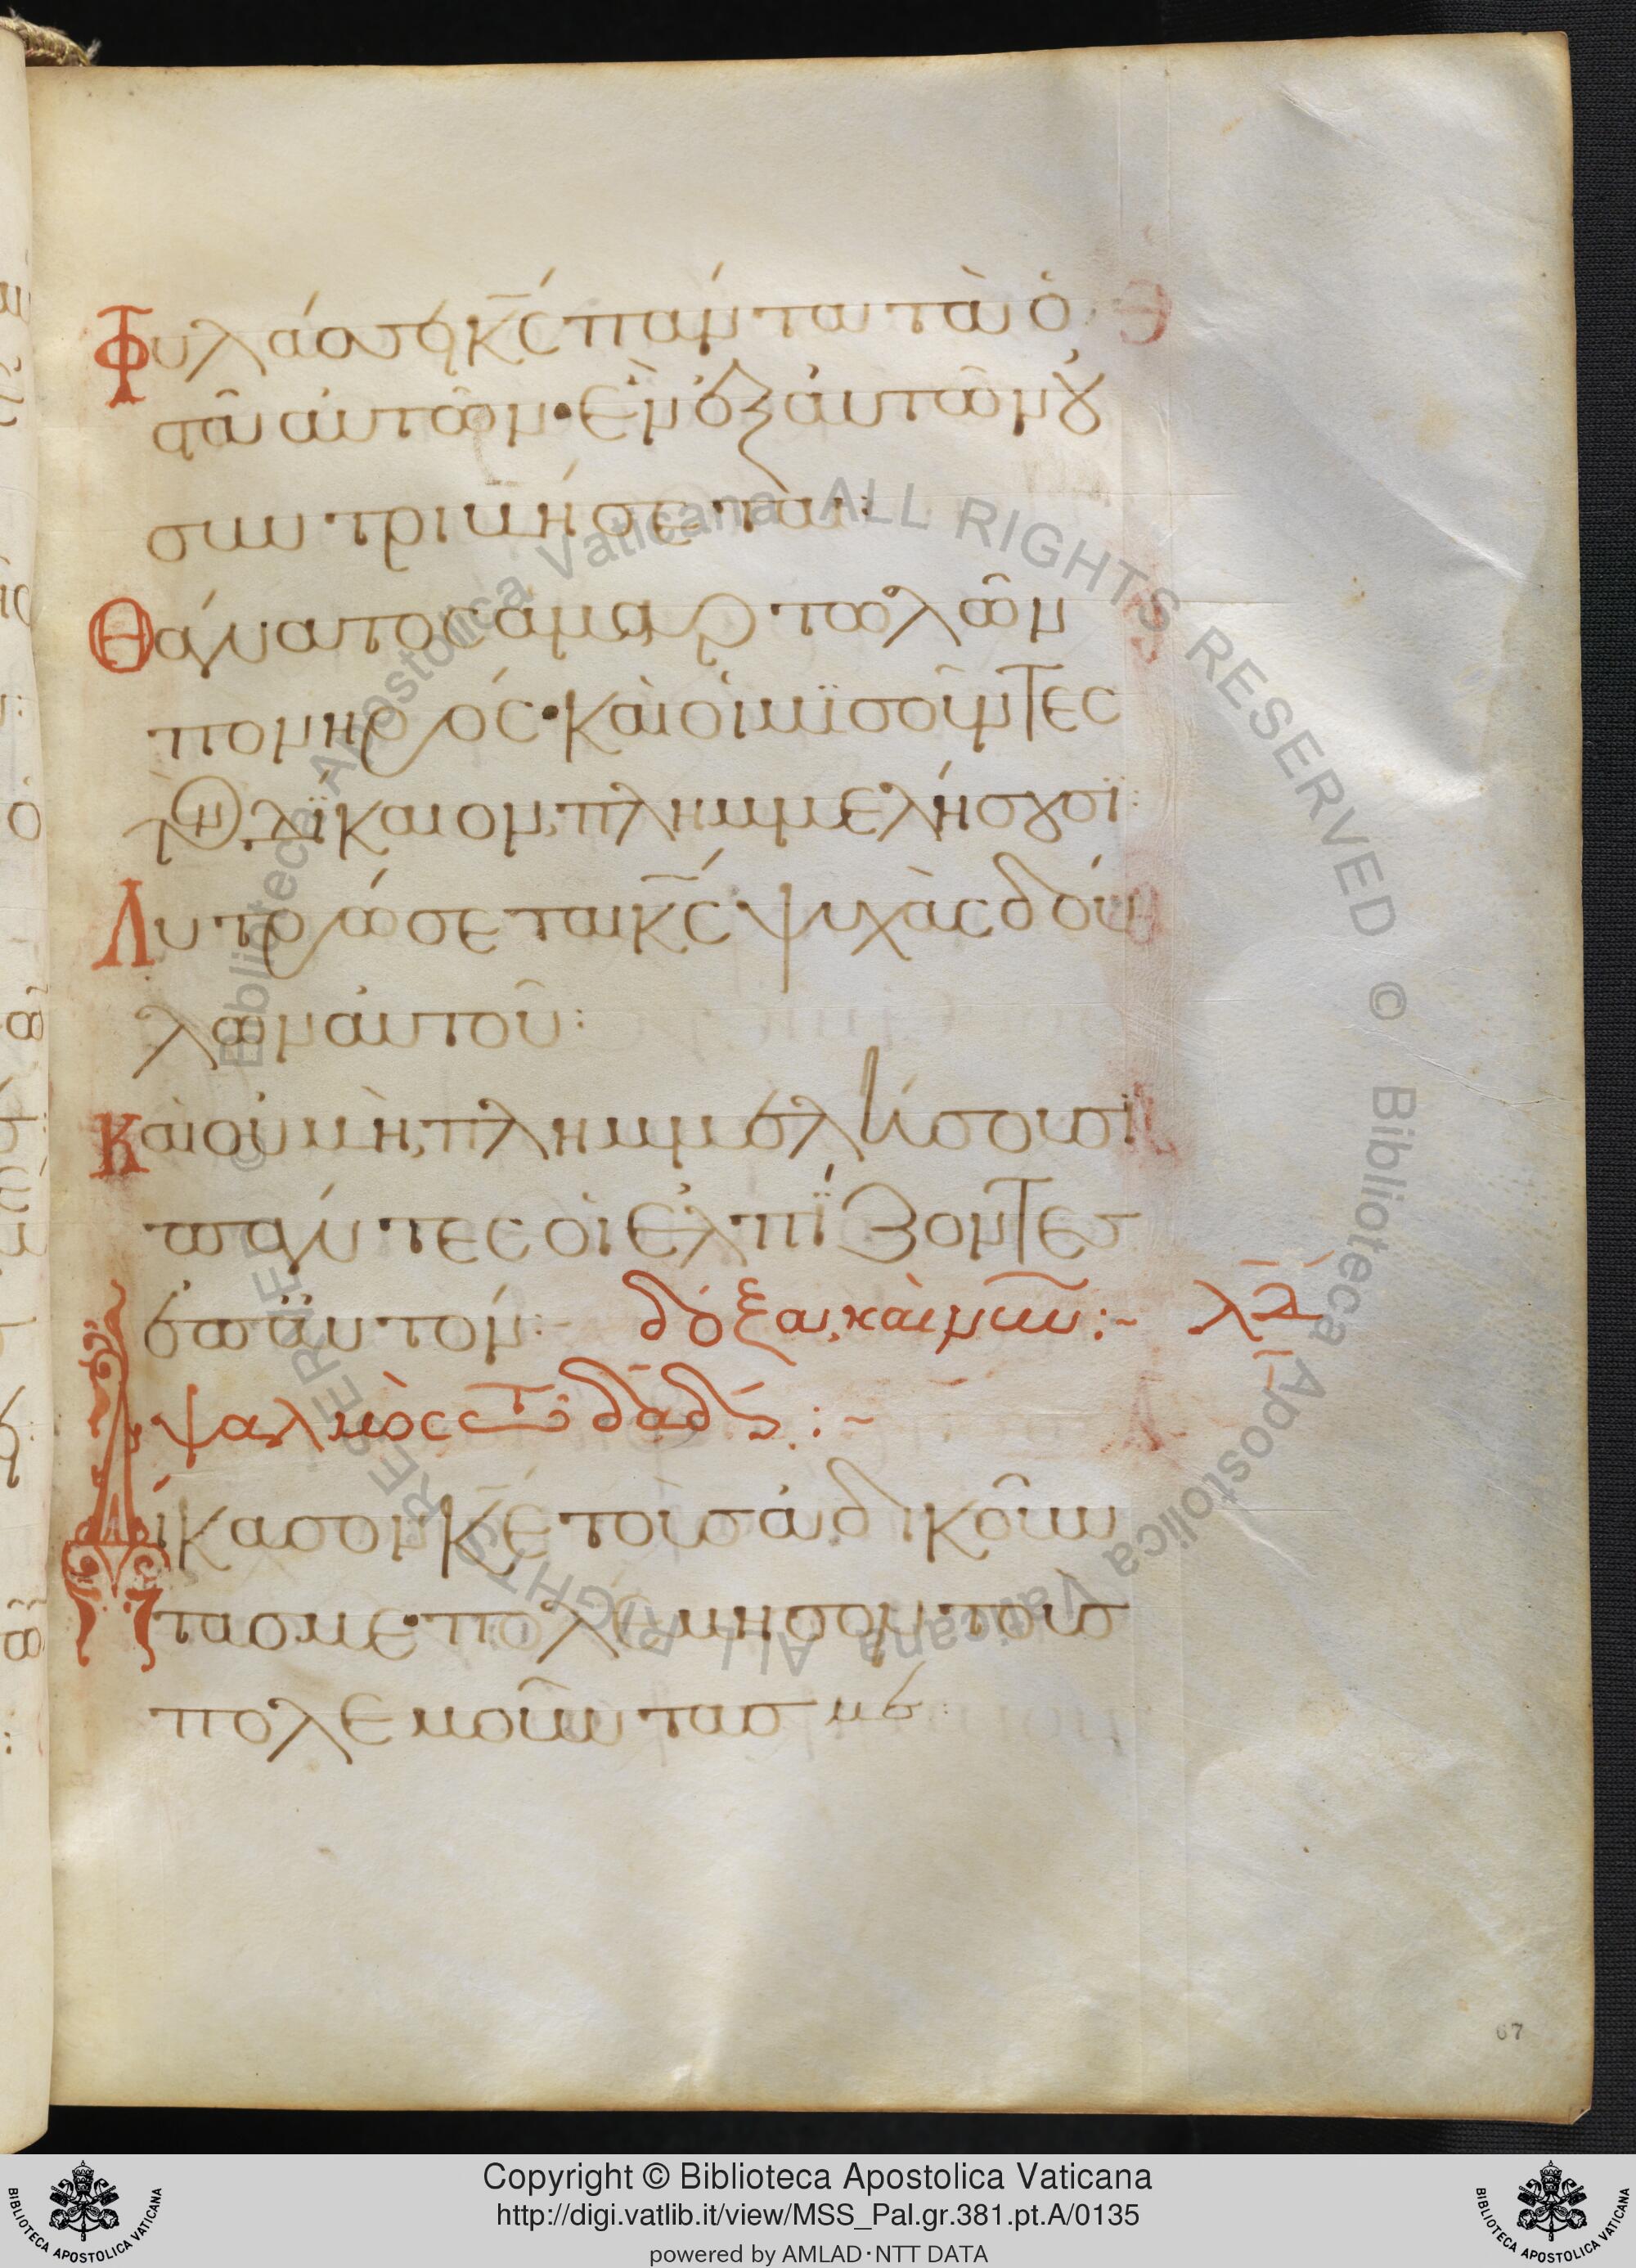 Φυλάσσει κ̅ς πάντα τὰ ὀ
στᾶ αὐτῶν· ἐν ἐξ αὐτῶν οὐ
συντριβήσεται:
Θάνατος ἁμαρτωλῶν
πονηρός· καὶ οἱ μϊσοῦντες
τὸν δίκαιον, πλημμελήσουσϊ:
Λυτρώσεται κ̅ς ψυχὰς δού
λων αὐτοῦ:
Καὶ οὐ μὴ, πλημμελήσουσϊ
πάντες οἱ ἐλπΐζοντες
ἐπ' αὐτόν:~ δόξα, καὶ νῦν:~ λδ
ψαλμὸς τῶ δα̅δ:~
Δίκασον κ̅ε τοὺς ἀδικοῦν
τας με· πολέμησον τοὺς
πολεμοῦντας με:
67
Biblioteca Apostolica Vaticana ALL RIGHTS RESERVED ©
Biblioteca Apostolica Vaticana ALL RIGHTS RESERVED ©
Copyright © Biblioteca Apostolica Vaticana
http://digi.vatlib.it/view/MSS_Pal.gr.381.pt.A/0135
powered by AMLAD·NTT DATA
BIBLIOTECA APOSTOLICA VATICANA
BIBLIOTECA APOSTOLICA VATICANA